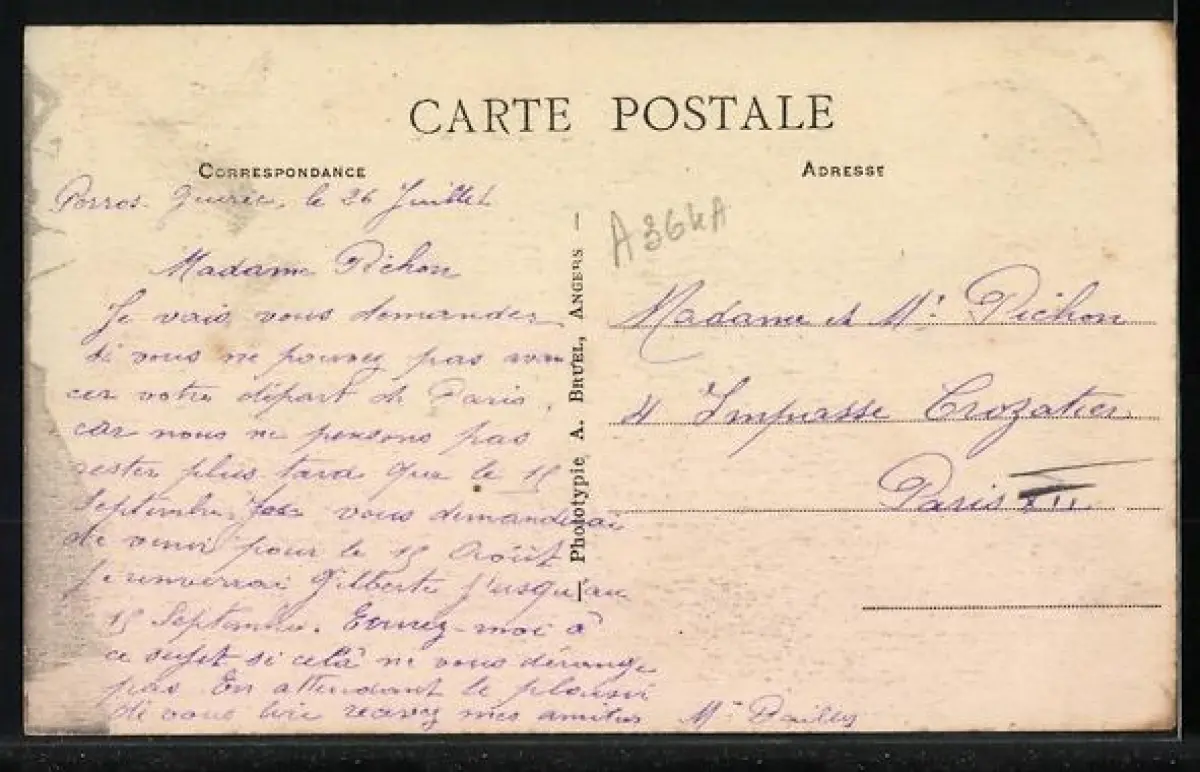 CARTE POSTALE
CORRESPONDANCE
ADRESSE
Perros-Guirec, le 26 Juillet
Madame Pichon
Je vais vous demander
si vous ne pouvez pas avan
cer votre départ de Paris,
car nous ne pensons pas
rester plus tard que le 15
Septembre, vous demanderai
de venir pour le 15 Août
Gilberte j'usqu'au
15 Septembre. Ecrivez-moi à
ce sujet si celà ne vous dérange
pas. En attendant le plaisir
de vous lire recevez mes amitiés
Phototypie A. BRUEL, ANGERS —
A364A
Madame et Mr Pichon
4 Impasse Crozatier
Paris XII